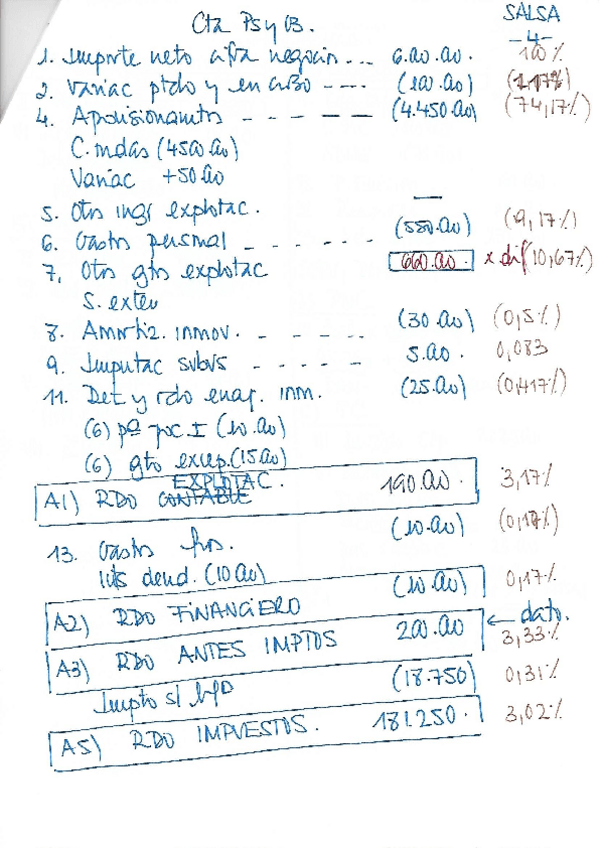 Cta Ps y GB. SALSA
-4-
1. Importe neto cifra negocios --- 6.00.00. 100%
2. Variac ptdo y en curso ---- (100.00) (1,17%)
4. Aprovisionamtos - - - - - (4.450.00) (74,17%)
C. mdas (4500.00)
Variac +50.00
5. Otros ingr explotac. —
6. Gastos personal - - - - - - (550.00) (9,17%)
7. Otros gtos explotac 660.00. x dif (10,67%)
S. exter
8. Amortiz. inmov. - - - - - - (30.00) (0,5%)
9. Imputac subvs - - - - - 5.00. 0,083
11. Det y rdo enaj. inm. (25.00) (0,417%)
(6) pª proc I (10.00)
(6) gto excep. (15.00)
A1) RDO CONTABLE EXPLOTAC. 190.00. 3,17%
13. Gastos fros. (10.00) (0,17%)
ints deud. (10.00)
A2) RDO FINANCIERO (10.00) 0,17%
A3) RDO ANTES IMPTOS 200.00 ← dato. 3,33%
Impto s/ bfo (18.750) 0,31%
A5) RDO IMPUESTOS. 181.250. 3,02%